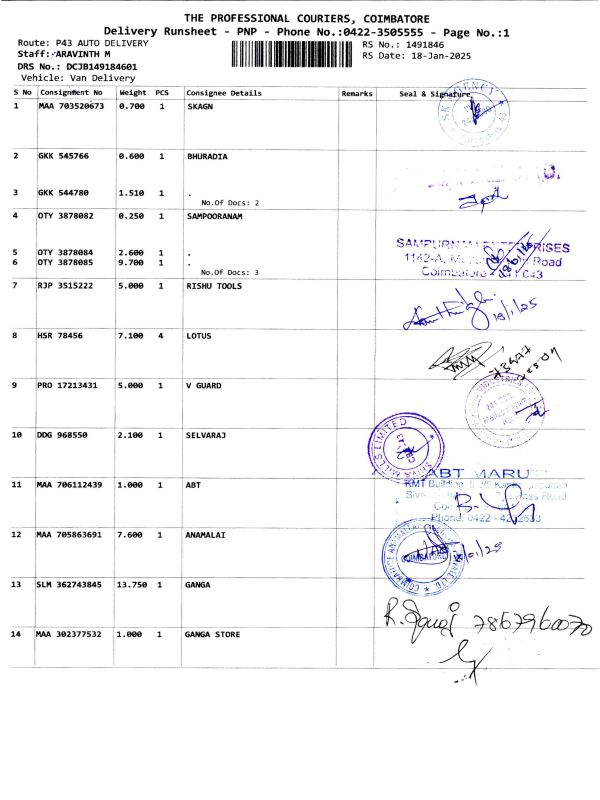 THE PROFESSIONAL COURIERS, COIMBATORE
Delivery Runsheet - PNP - Phone No.:0422-3505555 - Page No.:1
Route: P43 AUTO DELIVERY
RS No.: 1491846
Staff: ARAVINTH M
RS Date: 18-Jan-2025
DRS No.: DCJB149184601
Vehicle: Van Delivery
S No Consignment No Weight PCS Consignee Details Remarks Seal & Signature
1 MAA 703520673 0.700 1 SKAGN
2 GKK 545766 0.600 1 BHURADIA
3 GKK 544780 1.510 1 .
No.Of Docs: 2
4 OTY 3878082 0.250 1 SAMPOORANAM
5 OTY 3878084 2.600 1 .
6 OTY 3878085 9.700 1 .
No.Of Docs: 3
SAMPURNAM ENTERPRISES
1142-A, Road
Coimbatore - 641 043
7 RJP 3515222 5.000 1 RISHU TOOLS
18/1/25
8 HSR 78456 7.100 4 LOTUS
9 PRO 17213431 5.000 1 V GUARD
10 DDG 968550 2.100 1 SELVARAJ
MILLS LIMITED
11 MAA 706112439 1.000 1 ABT
ABT MARUTI
KMT Building
Road
Phone: 0422 -
12 MAA 705863691 7.600 1 ANAMALAI
COIMBATORE
13 SLM 362743845 13.750 1 GANGA
14 MAA 302377532 1.000 1 GANGA STORE